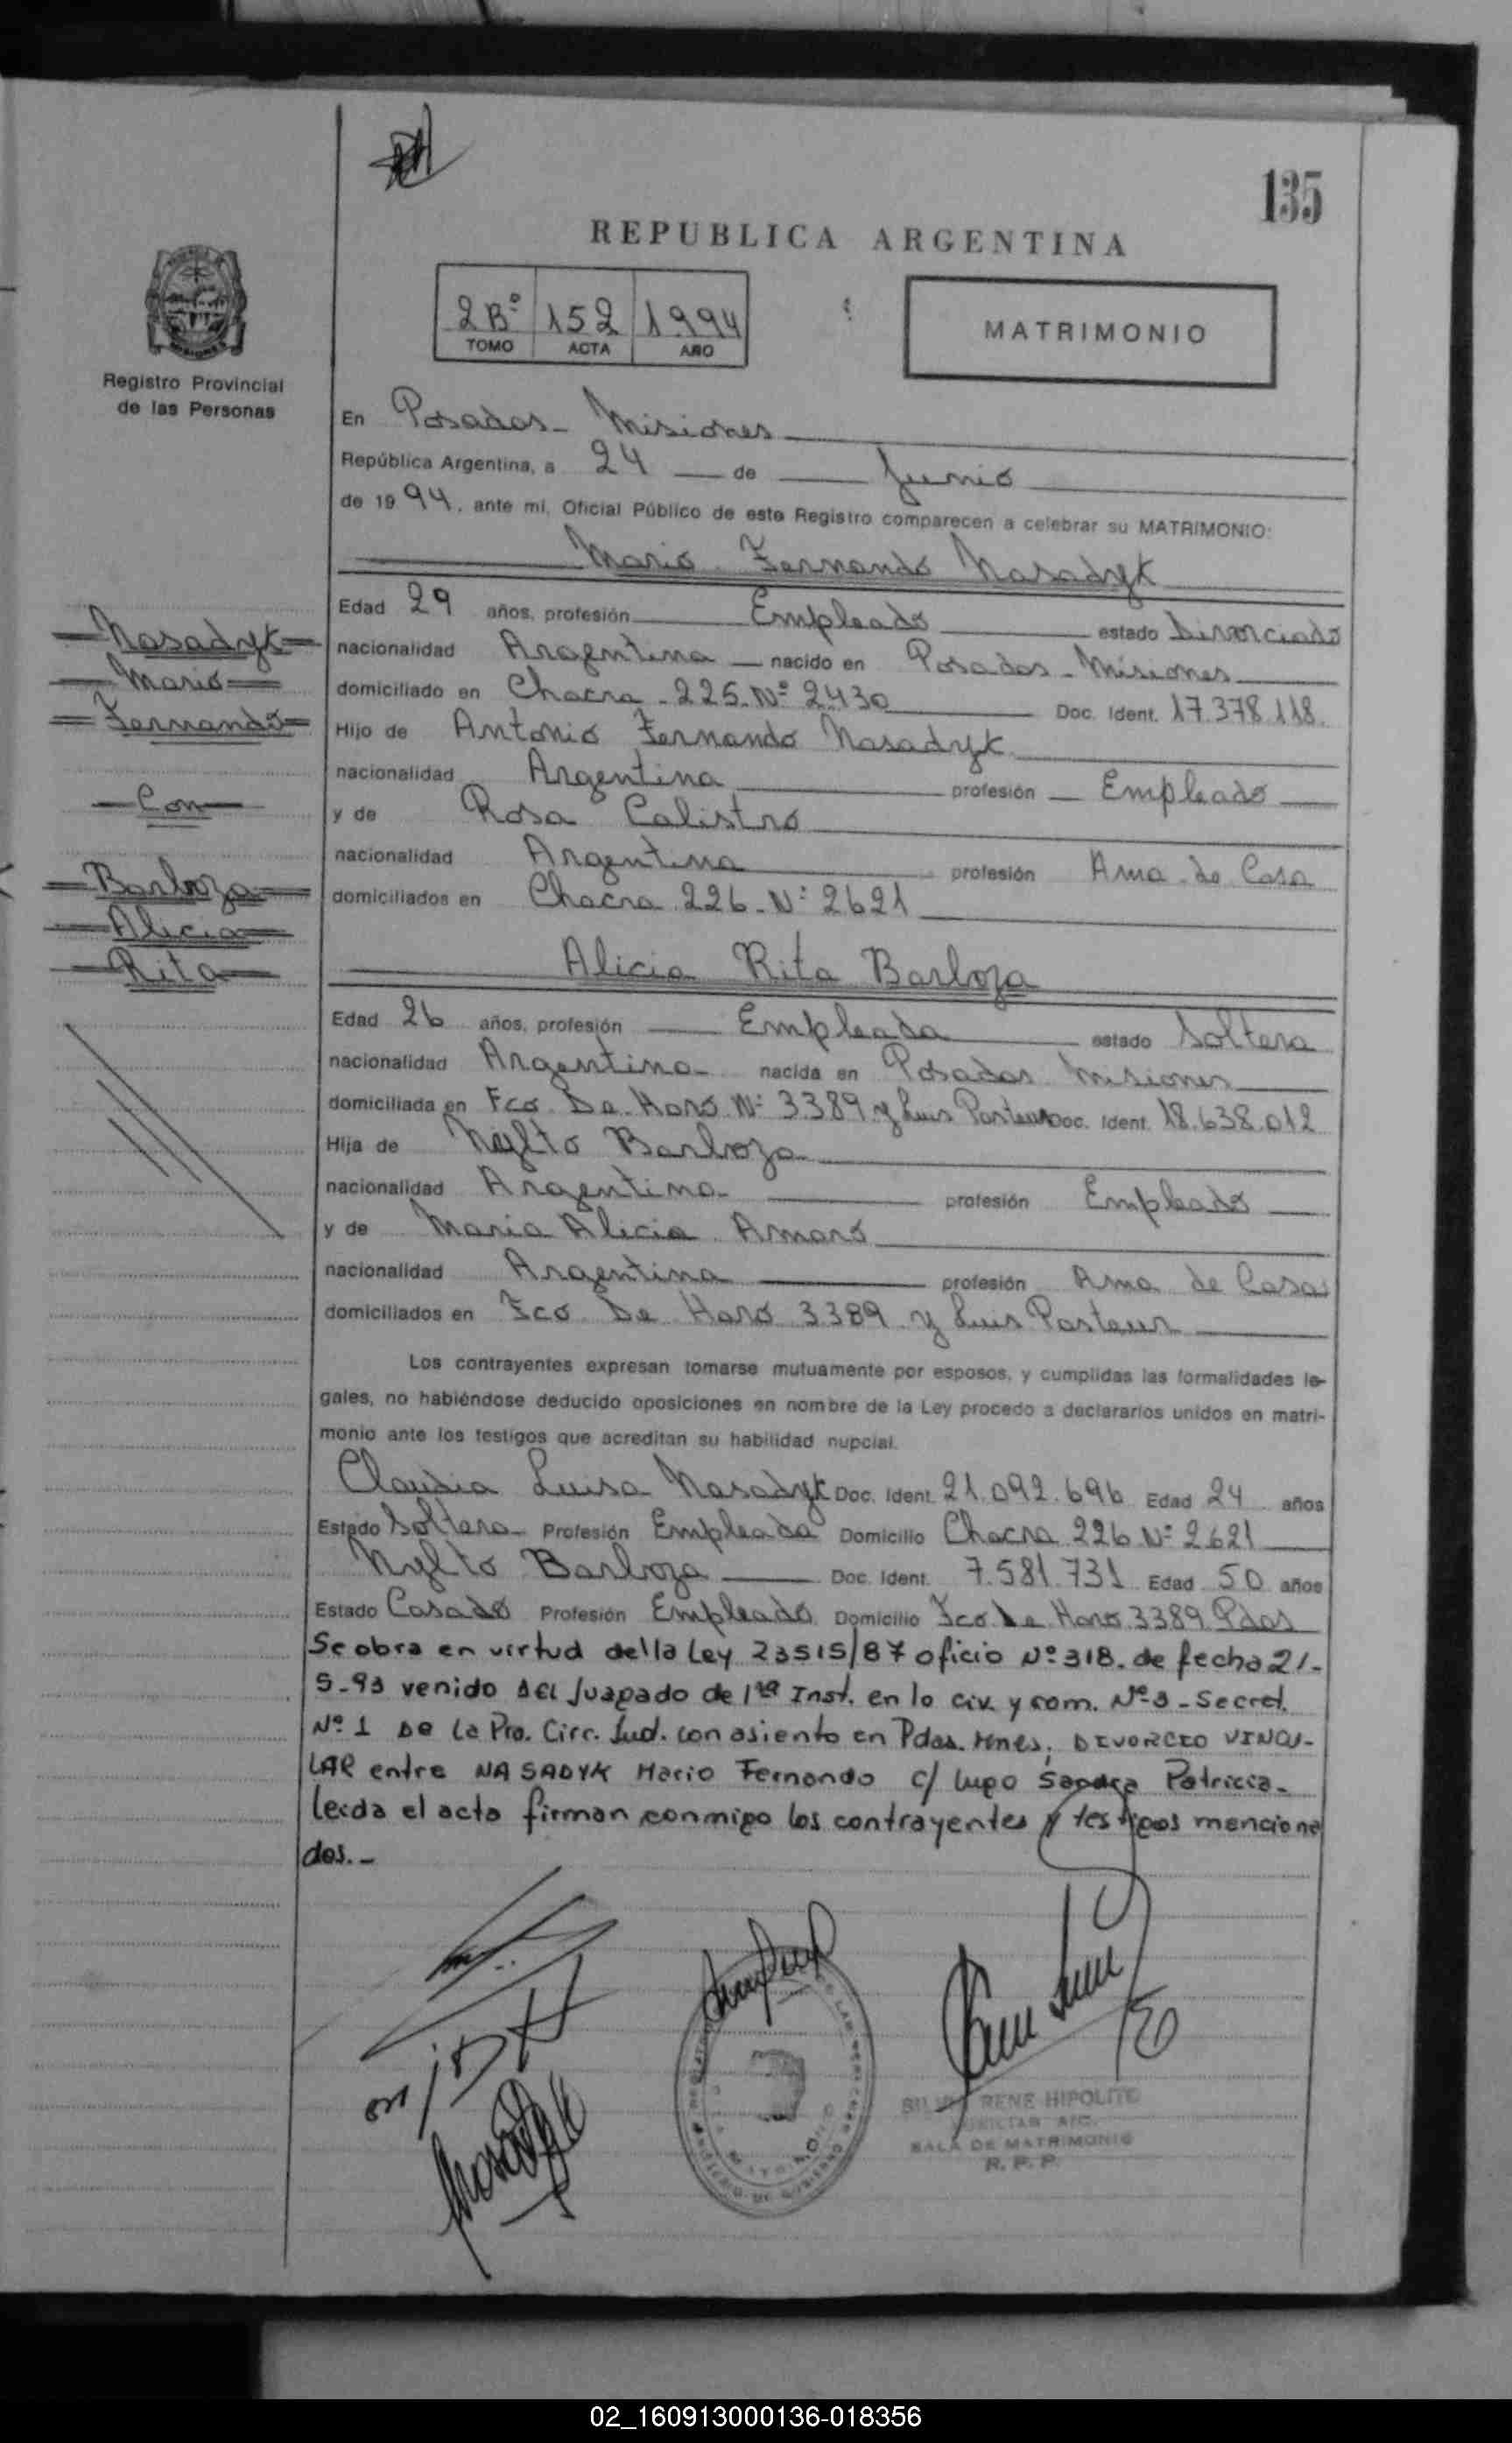 135
REPUBLICA ARGENTINA
2Bº 152 1994
TOMO ACTA AÑO
MATRIMONIO
Registro Provincial
de las Personas
En Posadas - Misiones
República Argentina, a 24 de Junio
de 1994, ante mi, Oficial Público de este Registro comparecen a celebrar su MATRIMONIO:
Mario Fernando Nasadyk
Edad 29 años, profesión Empleado estado Divorciado
nacionalidad Argentina nacido en Posadas - Misiones
domiciliado en Chacra 225 Nº 2430 Doc. Ident. 17.378.118
Hijo de Antonio Fernando Nasadyk
nacionalidad Argentina profesión Empleado
y de Rosa Calistro
nacionalidad Argentina profesión Ama de Casa
domiciliados en Chacra 226 - Nº 2621
Nasadyk
Mario
Fernando
Con
Barboza
Alicia
Rita
Alicia Rita Barboza
Edad 26 años, profesión Empleada estado Soltera
nacionalidad Argentina nacida en Posadas Misiones
domiciliada en Fco. De Haro Nº 3389 y Luis Pasteur Doc. Ident. 18.638.012
Hija de Nylto Barboza
nacionalidad Argentina profesión Empleado
y de Maria Alicia Amaro
nacionalidad Argentina profesión Ama de Casa
domiciliados en Fco De Haro 3389 y Luis Pasteur
Los contrayentes expresan tomarse mutuamente por esposos, y cumplidas las formalidades le-
gales, no habiéndose deducido oposiciones en nombre de la Ley procedo a declararlos unidos en matri-
monio ante los testigos que acreditan su habilidad nupcial.
Claudia Luisa Nasadyk Doc. Ident. 21.092.696 Edad 24 años
Estado Soltera Profesión Empleada Domicilio Chacra 226 Nº 2621
Nylto Barboza Doc. Ident. 7.581.731 Edad 50 años
Estado Casado Profesión Empleado Domicilio Fco De Haro 3389 Pdas
Se obra en virtud della Ley 23515/87 oficio Nº 318. de fecha 21-
5-93 venido del Juzgado de 1ra Inst. en lo civ. y com. Nº 3 - Secret.
Nº 1 De La Pra. Circ. Jud. con asiento en Pdas. Mnes; DIVORCIO VINCU-
LAR entre NASADYK Mario Fernando c/ Lupo Sandra Patricia-
leida el acta firman conmigo los contrayentes y testigos menciona
dos.-
RENE HIPOLITO
SALA DE MATRIMONIO
R. P. P.
02_160913000136-018356